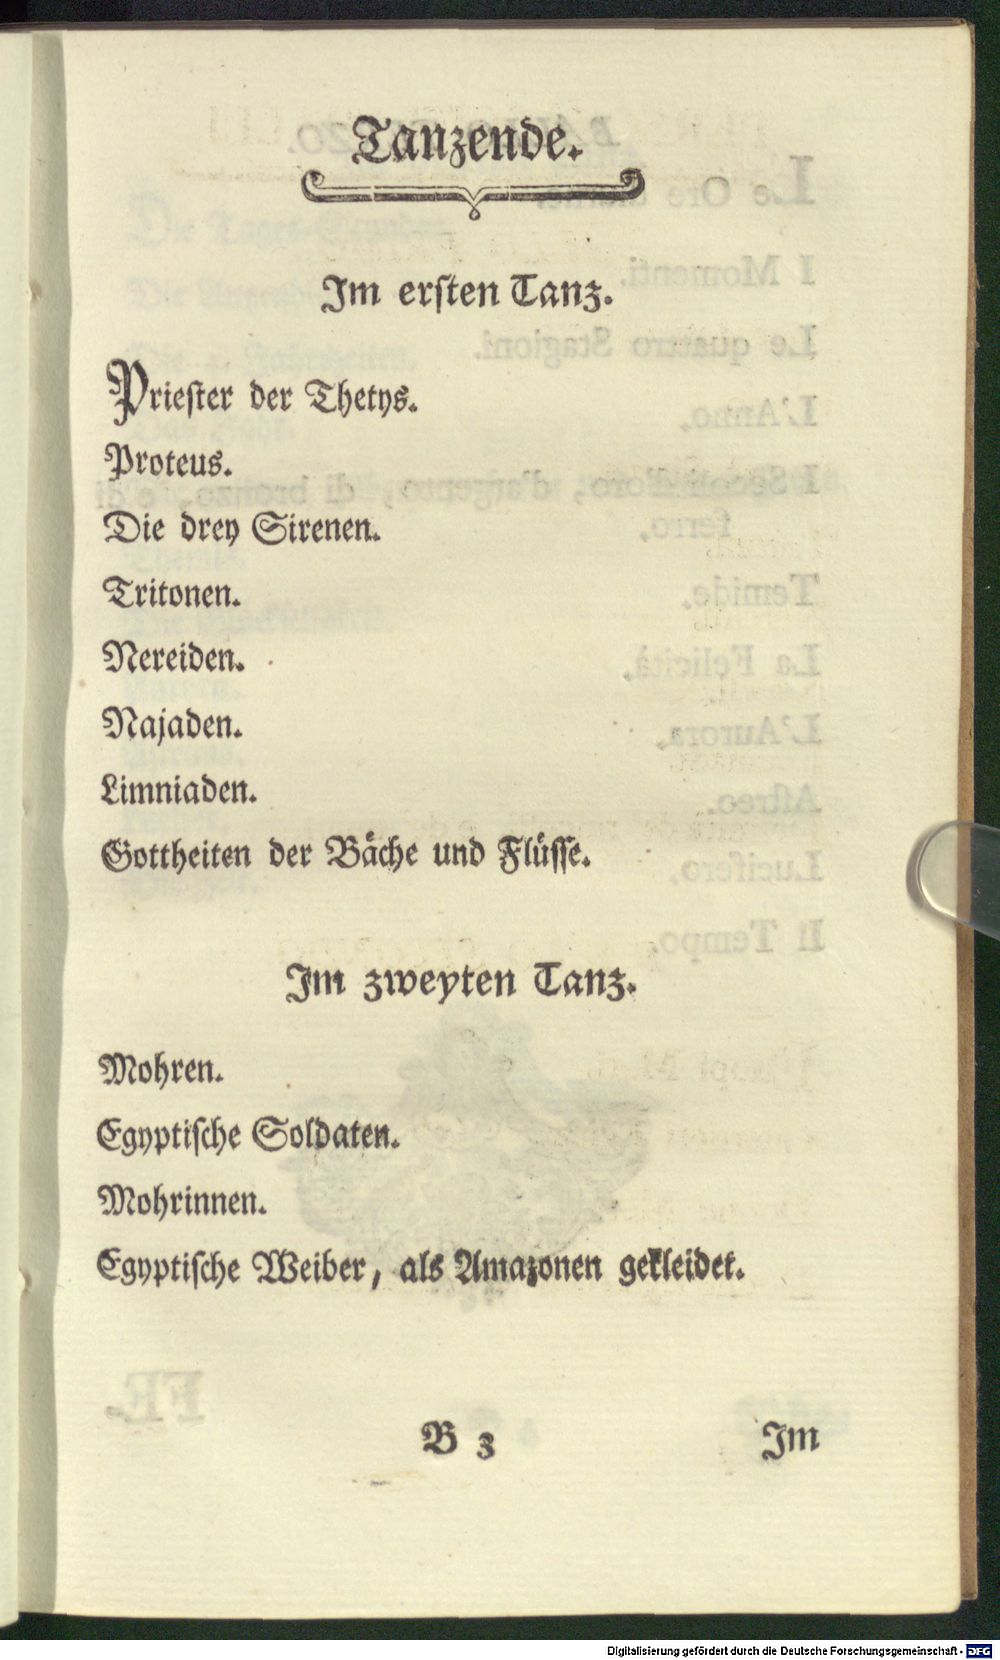 Tanzende.
Im erſten Tanz.
Prieſter der Thetys.
Proteus.
Die drey Sirenen.
Tritonen.
Nereiden.
Najaden.
Limniaden.
Gottheiten der Bäche und Flüſſe.
Im zweyten Tanz.
Mohren.
Egyptiſche Soldaten.
Mohrinnen.
Egyptiſche Weiber, als Amazonen gekleidet.
B 3 Im
Digitalisierung gefördert durch die Deutsche Forschungsgemeinschaft - DFG